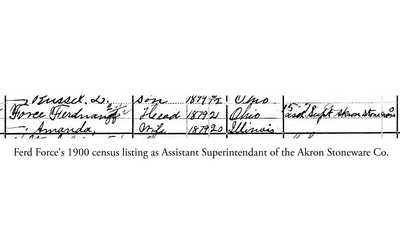 — Russel, L. Son 1879 Ohio
Force Ferdinand Head 1879 21 Ohio Asst Supt Akron Stoneware
— Amanda, Wife 1879 20 Illinois
Ferd Force's 1900 census listing as Assistant Superintendant of the Akron Stoneware Co.